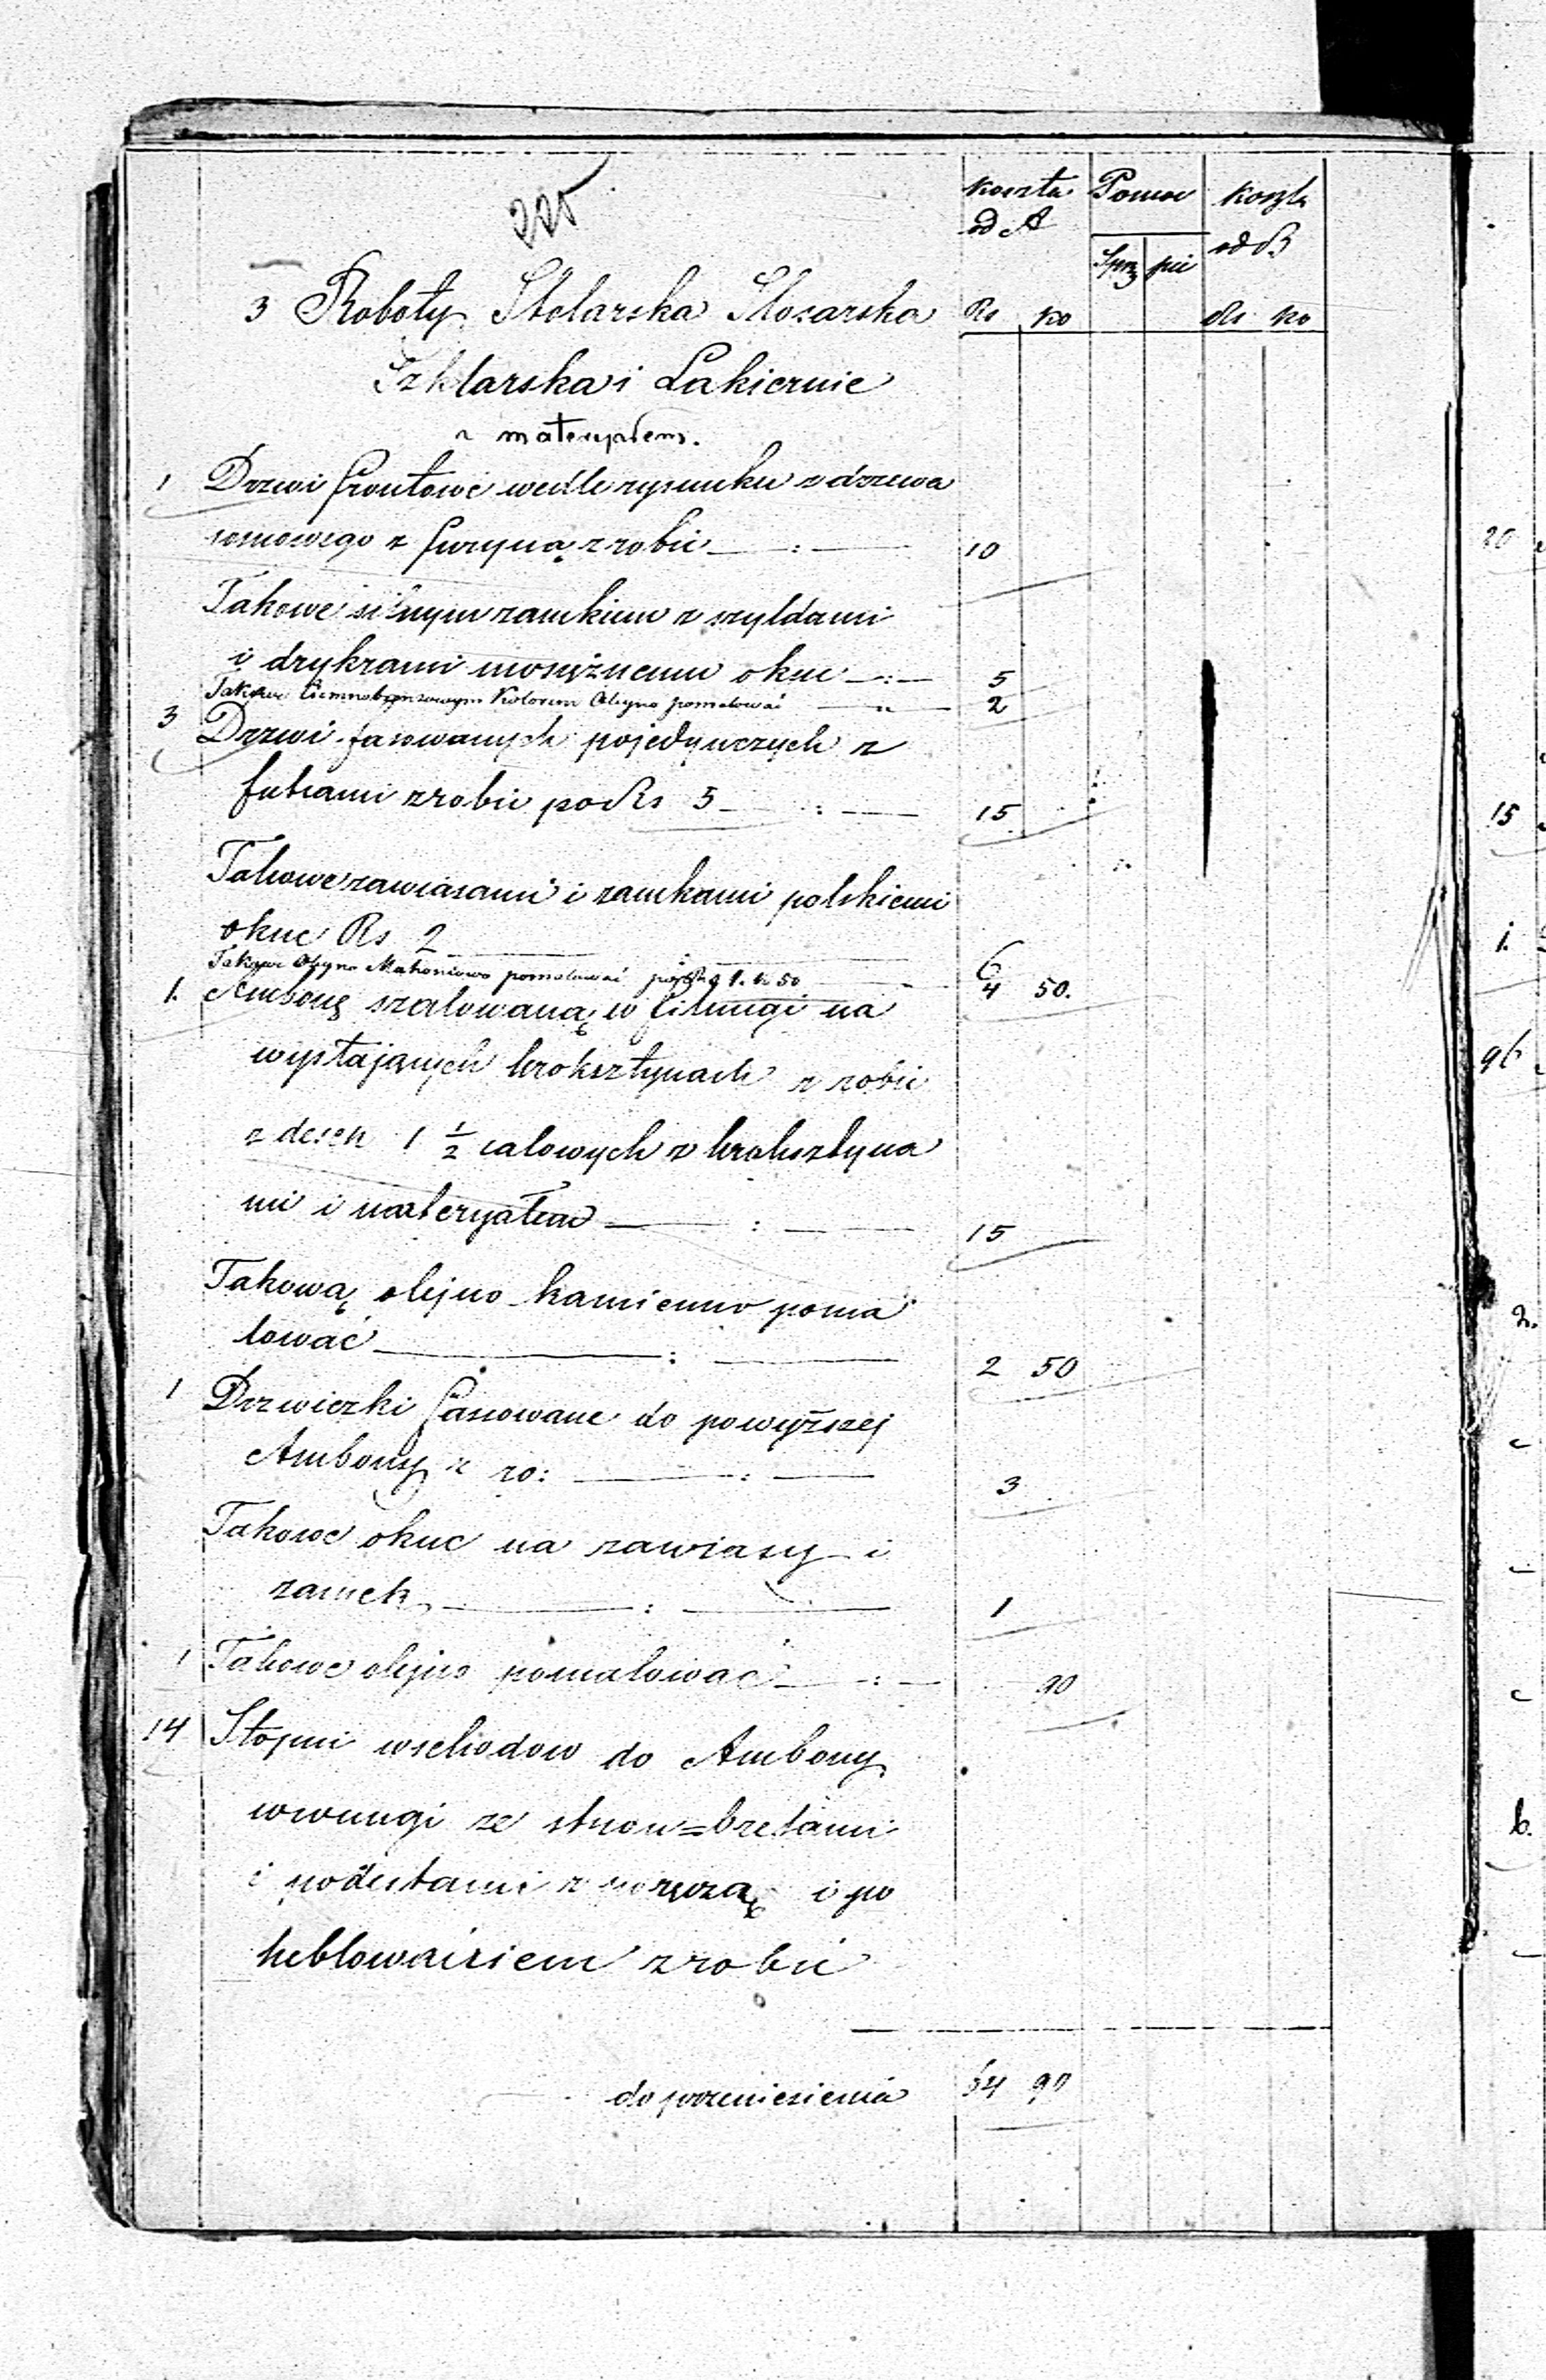 225
koszta Pomoc koszta
od A od B
Sprz pie
3 Roboty Stolarska Slosarska Rs ko Rs ko
Szklarska i Lakiernie
z materyałem.
1 Drzwi frontowe wedle rysunku z drzewa
sosnowego z furyną zrobić — : — 10
Takowe silnym zamkiem z szyldami
i drykrami mosiężnemi okuc — : — 5
Takowe Ciemnobronzowym Kolorem Olejno pomalować — " — 2
3 Drzwi fasowanych pojedynczych z
futrami zrobić po Rs 5 — : — 15
Takowe zawiasami i zamkami polskiemi
okuc Rs 2 — 6
Takowe Olejno Mahoniowo pomalować po Rs 1. k 50 — 4 50.
1. Ambonę szalowaną w filungi na
wystających kroksztynach zrobić
z desek 1 1/2 calowych z kroksztyna
mi i materyałem — : — 15
Takową olejno kamienno poma
lować — : — 2 50
1 Drzwiczki fassowane do powyższej
Ambony z ro: — : — 3
Takowe okuc na zawiasy i
zamek — : — 1
1 Takowe olejno pomalować — : — 90
14 Stopni wschodow do Ambony
wwungi ze sztos=bretami
i podestami z poręczą i po
heblowaniem zrobić
do przeniesienia 64 90